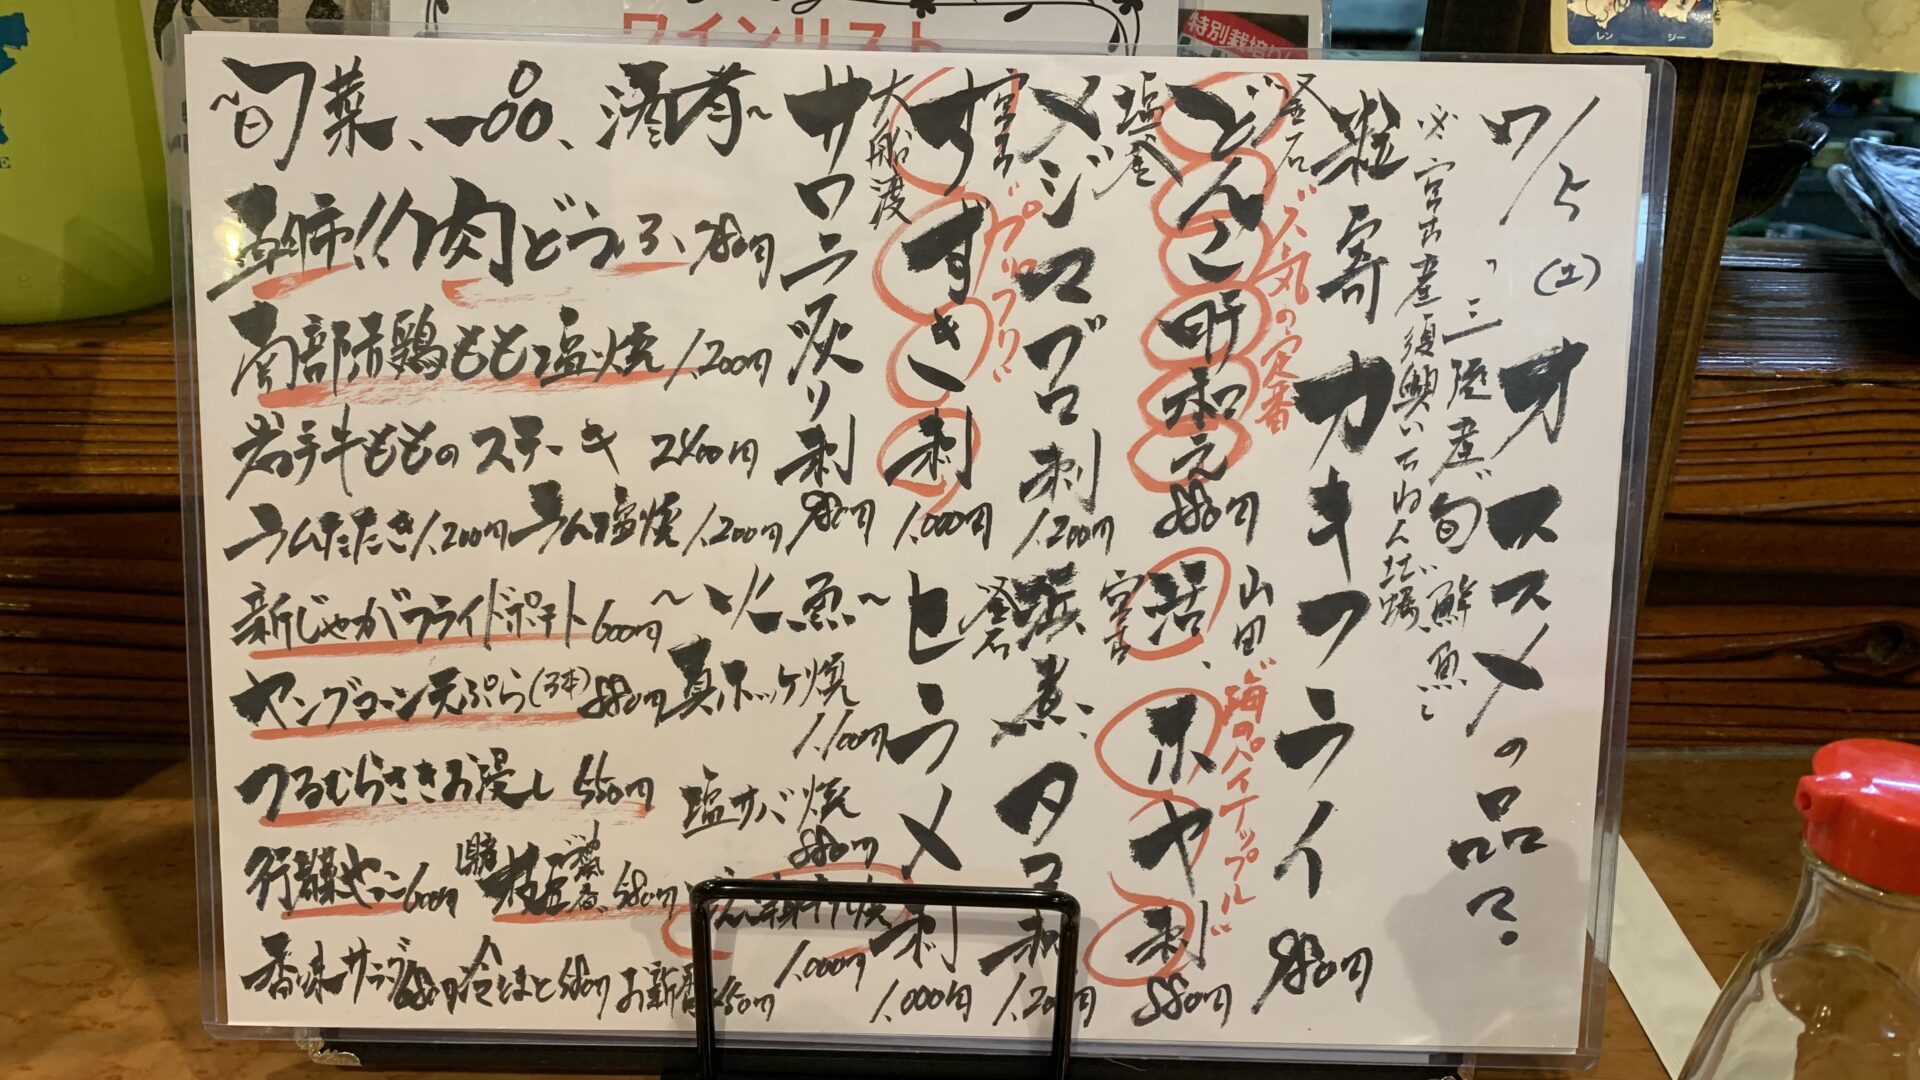 ワインリスト
特別栽培
レン
ジー
7/5(土) オススメの品々
三陸産旬鮮魚
粒寄カキフライ 980円
釜石
どんこ肝和え 880円
"大人気の定番"
山田
活、ホヤ刺 880円
"海のパイナップル"
塩釜
メジマグロ刺 1,200円
宮古
浜煮タコ刺 1,200円
宮古
すずき刺 1,000円
"プリップリ"
釜石
ヒラメ刺 1,000円
大船渡
サワラ炙り刺 980円
〜火、魚〜
真ホッケ焼 1,100円
塩サバ焼 880円
1,000円
〜旬菜、一品、酒肴〜
肉どうふ 780円
南部赤鶏もも塩焼 1,200円
岩手牛ももステーキ 2400円
ラムたたき 1,200円
ラム塩焼 1,200円
新じゃがフライドポテト 600円
ヤングコーン天ぷら(3本) 880円
つるむらさきお浸し 550円
行者菜キムコ 600円
枝豆 580円
香味サラダ 680円
冷とまと 580円
お新香 450円